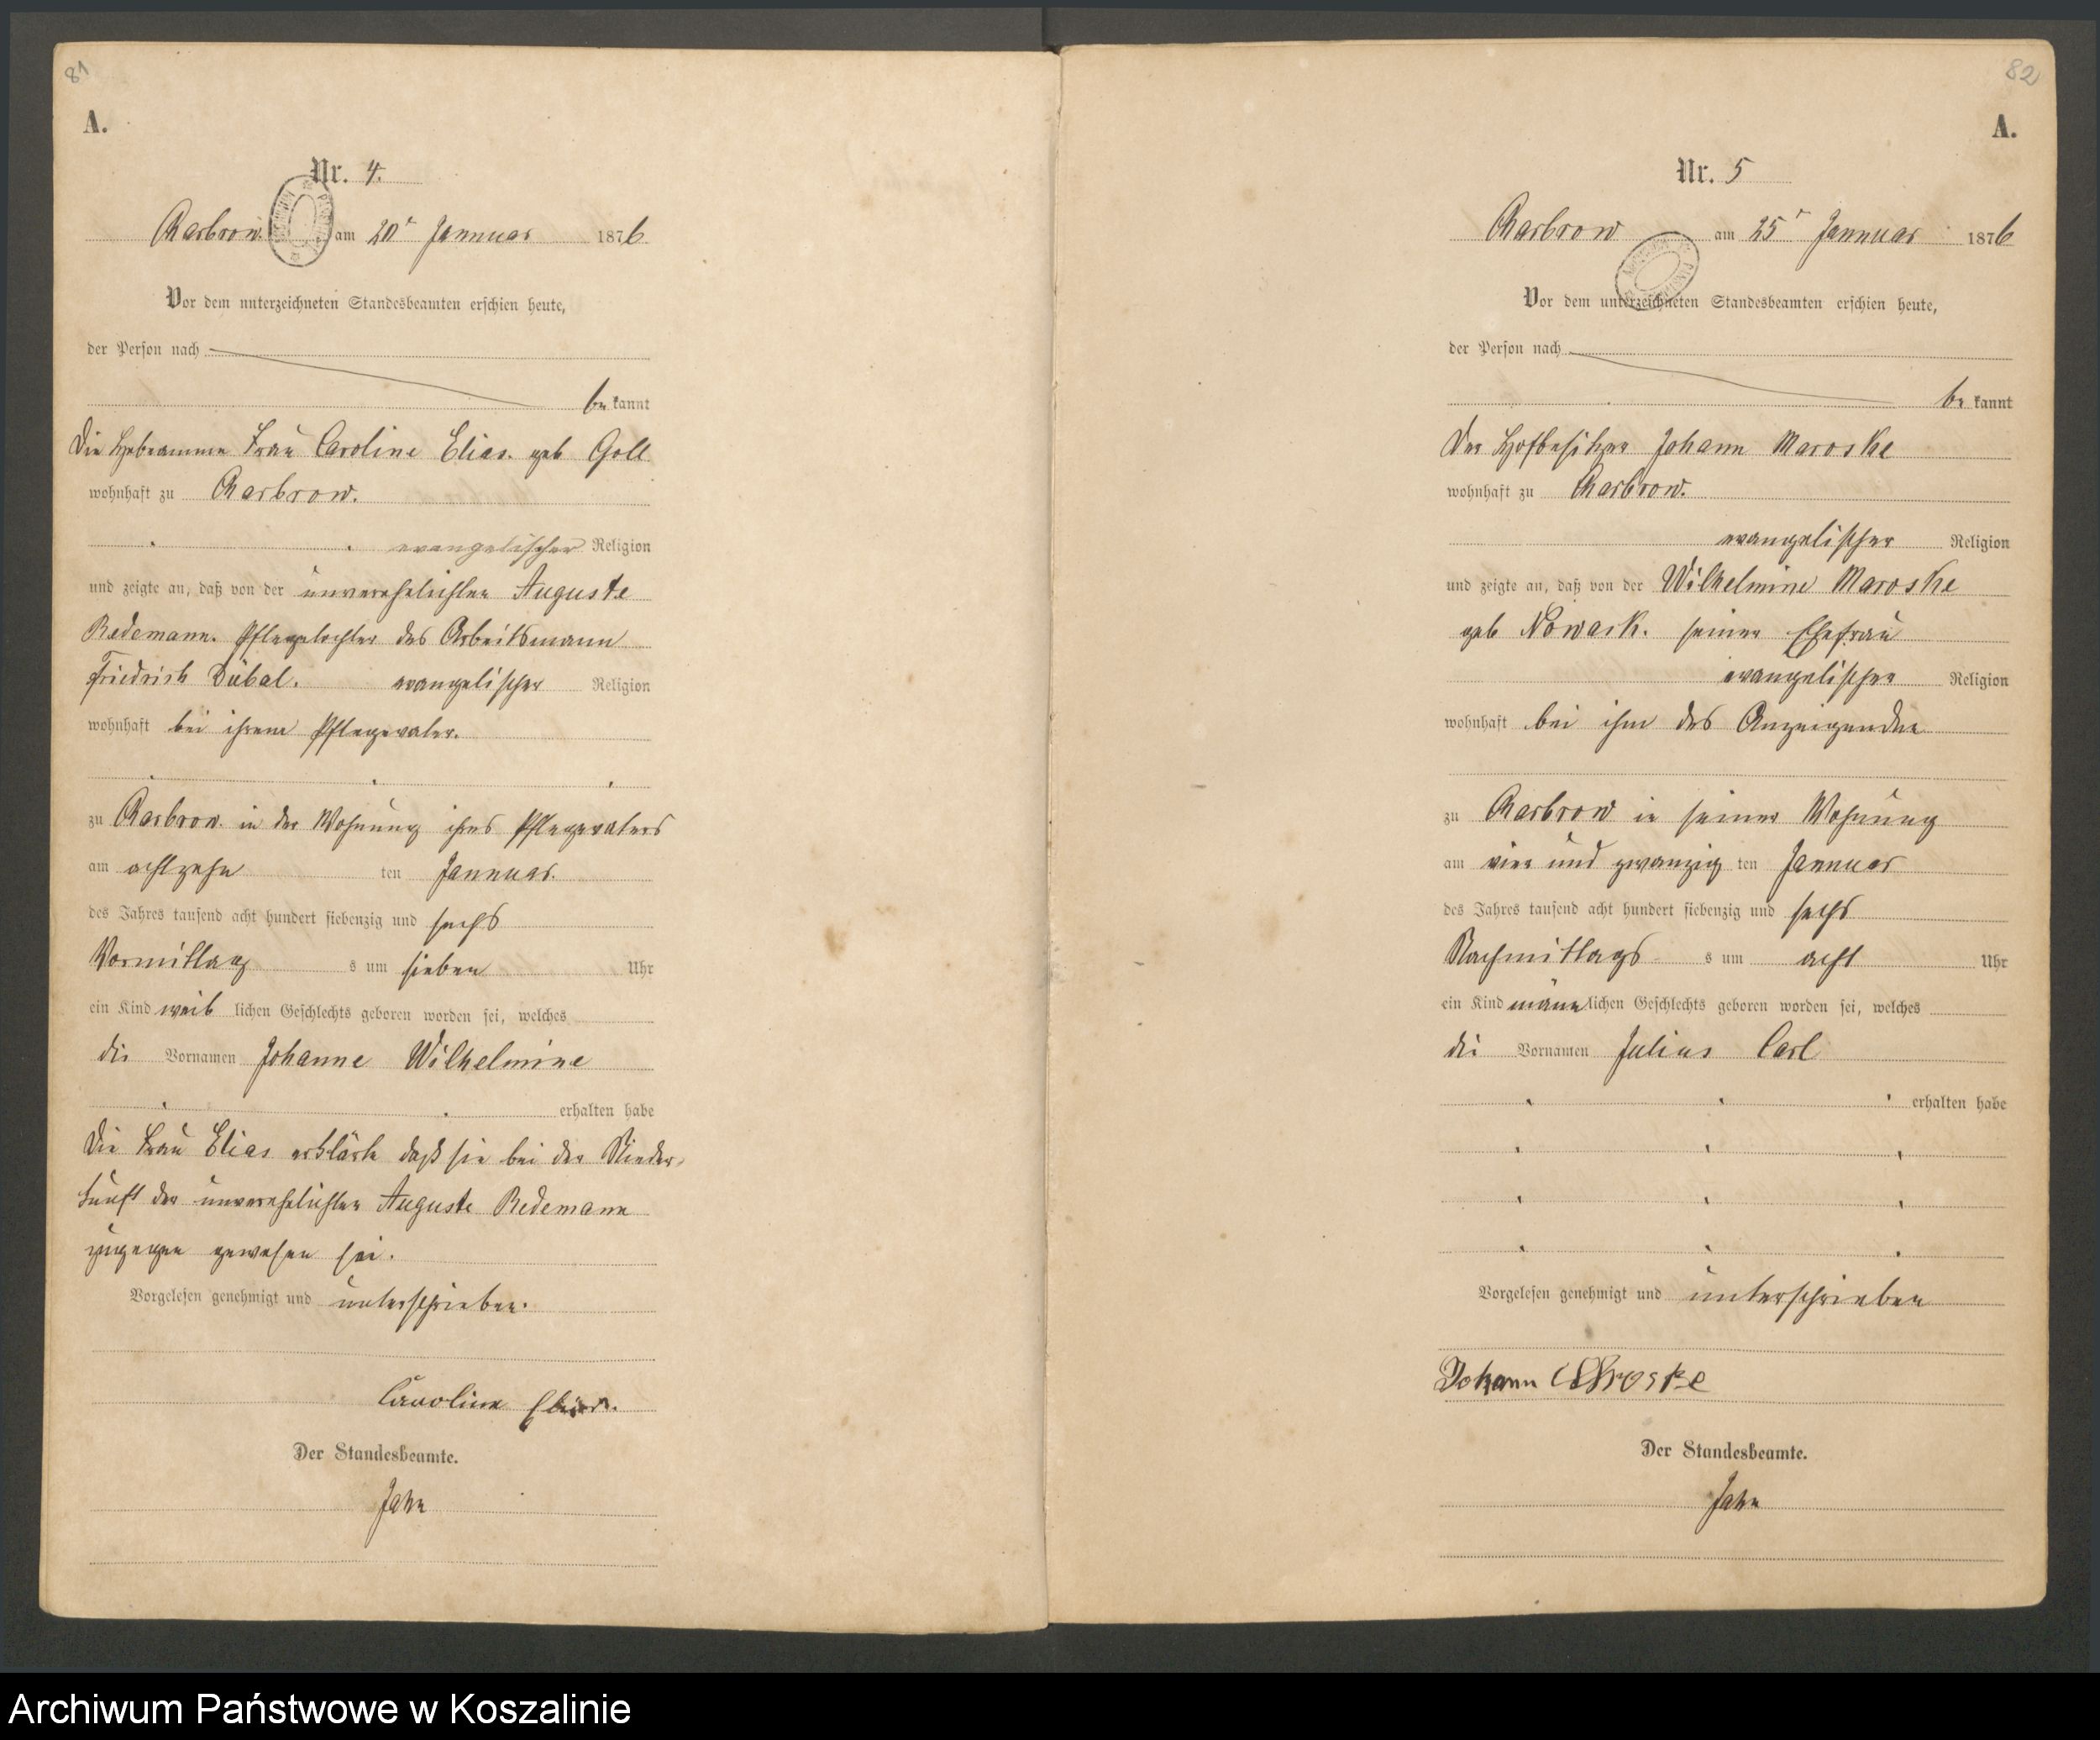 81
A.
Nr. 4.
Charbrow. am 20t Jannuar 1876
Vor dem unterzeichneten Standesbeamten erschien heute,
der Person nach
be kannt
Die Hebeamme Frau Caroline Elias. geb Goll
wohnhaft zu Charbrow.
evangelischer Religion
und zeigte an, daß von der unverehelichten Auguste
Redemann. Pflegetochter des Arbeitsmann
Friedrich Dübal. evangelischer Religion
wohnhaft bei ihrem Pflegevater.
zu Charbrow in der Wohnung ihres Pflegevaters
am achtzehn ten Jannuar.
des Jahres tausend acht hundert siebenzig und sechs
Vormittag s um sieben Uhr
ein Kind weib lichen Geschlechts geboren worden sei, welches
die Vornamen Johanne Wilhelmine
erhalten habe
Die Frau Elias erklärte daß sie bei der Nieder-
kunft der unverehelichten Auguste Redemann
zugegen gewesen sei.
Vorgelesen genehmigt und unterschrieben.
Caroline Elias.
Der Standesbeamte.
Jahn
82
A.
Nr. 5
Charbrow am 25t Jannuar 1876
Vor dem unterzeichneten Standesbeamten erschien heute,
der Person nach
be kannt
Der Hofbesitzer Johann Maroske
wohnhaft zu Charbrow.
evangelischer Religion
und zeigte an, daß von der Wilhelmine Maroske
geb Nowack. seiner Ehefrau
evangelischer Religion
wohnhaft bei ihm des Anzeigenden
zu Charbrow in seiner Wohnung
am vier und zwanzig ten Jannuar
des Jahres tausend acht hundert siebenzig und sechs
Nachmittags s um acht Uhr
ein Kind männ lichen Geschlechts geboren worden sei, welches
die Vornamen Julius Carl
erhalten habe
Vorgelesen genehmigt und unterschrieben
Johann Maroske
Der Standesbeamte.
Jahn
Archiwum Państwowe w Koszalinie